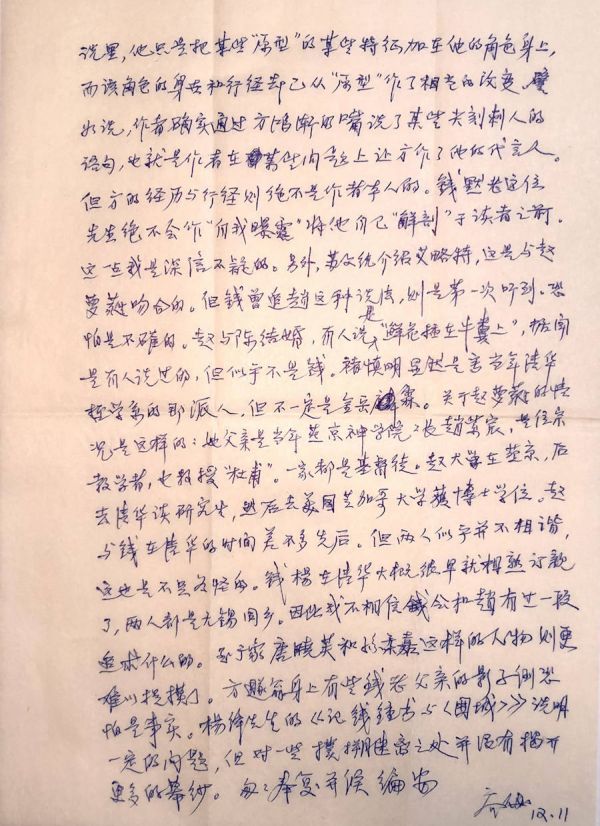 说里，他只是把某些“原型”的某些特征加在他的角色身上，
而该角色的身世和行径却已从“原型”作了相当的改变。譬
如说，作者确实通过方鸿渐的嘴说了某些尖刻刺人的
语句，也就是作者在某些问题上让方作了他的代言人。
但方的经历与行径则绝不是作者本人的。钱默老这位
先生绝不会作“自我曝露”将他自己“解剖”于读者之前。
这一点我是深信不疑的。另外，苏文纨介绍艾略特，这是与赵
萝蕤吻合的。但钱曾追趙这种说法，则是第一次听到。恐
怕是不确的。赵与陈结婚，有人说是“鲜花插在牛糞上”，据闻
是有人说过的，但似乎不是钱。褚慎明显然是害当年清华
哲学系的那派人，但不一定是金岳霖。关于赵萝蕤的情
况是这样的：她父亲是当年燕京神学院院长趙紫宸，是位宗
教学者，也教授“杜甫”。一家都是基督徒。赵大学在燕京，后
去清华读研究生，然后去美国芝加哥大学獲博士学位。赵
与钱在清华的时间差不多先后。但两人似乎并不相谐，
这也是不足为怪的。钱杨在清华大概很早就相熟订親
了，两人都是无锡同乡。因此我不相信钱公和趙有过一段
追求什么的。至于唐曉芙和孙柔嘉这样的人物则更
难以捉摸了。方遯翁身上有些钱老父亲的影子倒恐
怕是事实。杨绛先生的《记钱锺书与《围城》》说明
一定的问题，但对一些模糊隐密之处并没有揭开
更多的幕纱。匆匆奉复并候 编安
12.11